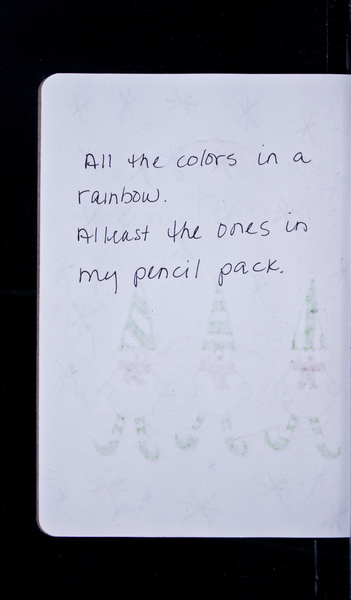 All the colors in a
rainbow.
Alleast the ones in
my pencil pack.